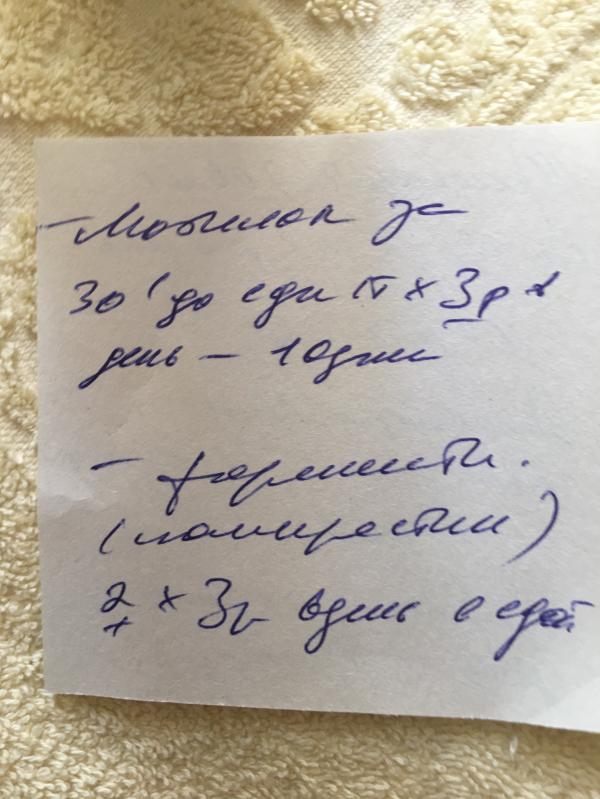 - Мотилак за
30' до еды 1т х 3р в
день - 10 дней
- ферменты.
(панкреатин)
2т х 3р в день с едой